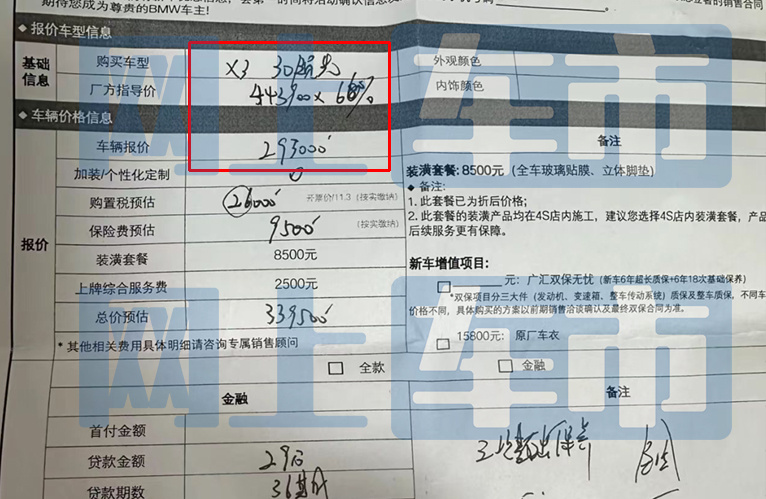 期待您成为尊贵的BMW车主!
的销售合同
◆ 报价车型信息
基础信息
购买车型 X3 30领先 外观颜色
厂方指导价 443900 x 内饰颜色
◆ 车辆价格信息
备注
报价
车辆报价 293000
加装/个性化定制 0
购置税预估 26000 开票价/11.3 (按实缴纳)
保险费预估 9500 (按实缴纳)
装潢套餐 8500元
上牌综合服务费 2500元
总价预估 339500
* 其他相关费用具体明细请咨询专属销售顾问
装潢套餐: 8500元 (全车玻璃贴膜、立体脚垫)
◆ 备注:
1. 此套餐已为折后价格;
2. 此套餐的装潢产品均在4S店内施工，建议您选择4S店内装潢套餐，产品
后续服务更有保障。
新车增值项目:
元: 广汇双保无忧 (新车6年超长质保+6年18次基础保养)
*双保项目分三大件 (发动机、变速箱、整车传动系统) 质保及整车质保，不同车
价格不同，具体购买的方案以前期销售洽谈确认及最终双保合同为准。
15800元: 原厂车衣
全款
金融
金融
备注
首付金额
贷款金额 29万
贷款期数 36
网上车市
网上车市